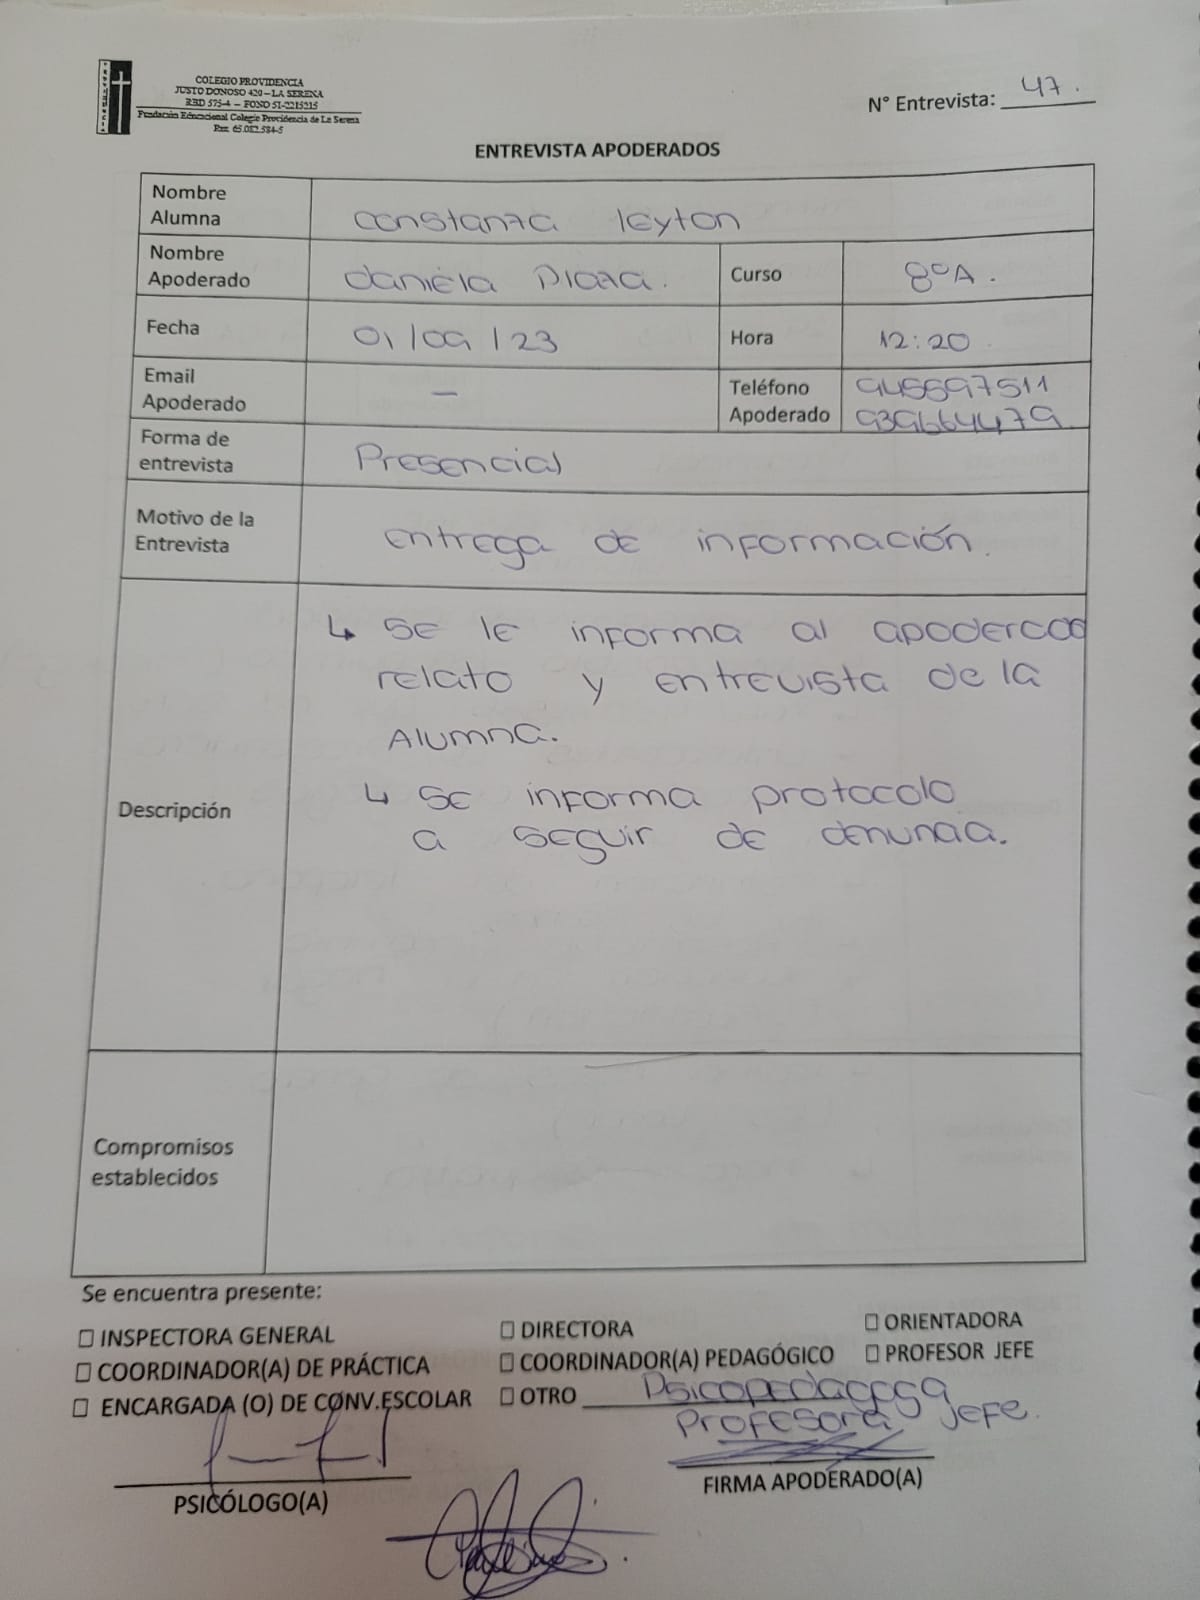 COLEGIO PROVIDENCIA
JUSTO DONOSO 420 – LA SERENA
RBD 575-4 – FONO 51-2215215
Fundación Educacional Colegio Providencia de La Serena
Rut: 65.082.584-5
N° Entrevista: 47.
ENTREVISTA APODERADOS
Nombre Alumna constanza leyton
Nombre Apoderado daniela Plaza. Curso 8°A.
Fecha 01/09/23 Hora 12:20
Email Apoderado — Teléfono Apoderado 945597511
939664479
Forma de entrevista Presencial
Motivo de la Entrevista entrega de información.
Descripción
↳ se le informa al apoderado
relato y entrevista de la
Alumna.
↳ se informa protocolo
a seguir de denuncia.
Compromisos establecidos
Se encuentra presente:
☐ INSPECTORA GENERAL ☐ DIRECTORA ☐ ORIENTADORA
☐ COORDINADOR(A) DE PRÁCTICA ☐ COORDINADOR(A) PEDAGÓGICO ☐ PROFESOR JEFE
☐ ENCARGADA (O) DE CONV.ESCOLAR ☐ OTRO Psicopedagoga
Profesora Jefe.
PSICÓLOGO(A) FIRMA APODERADO(A)